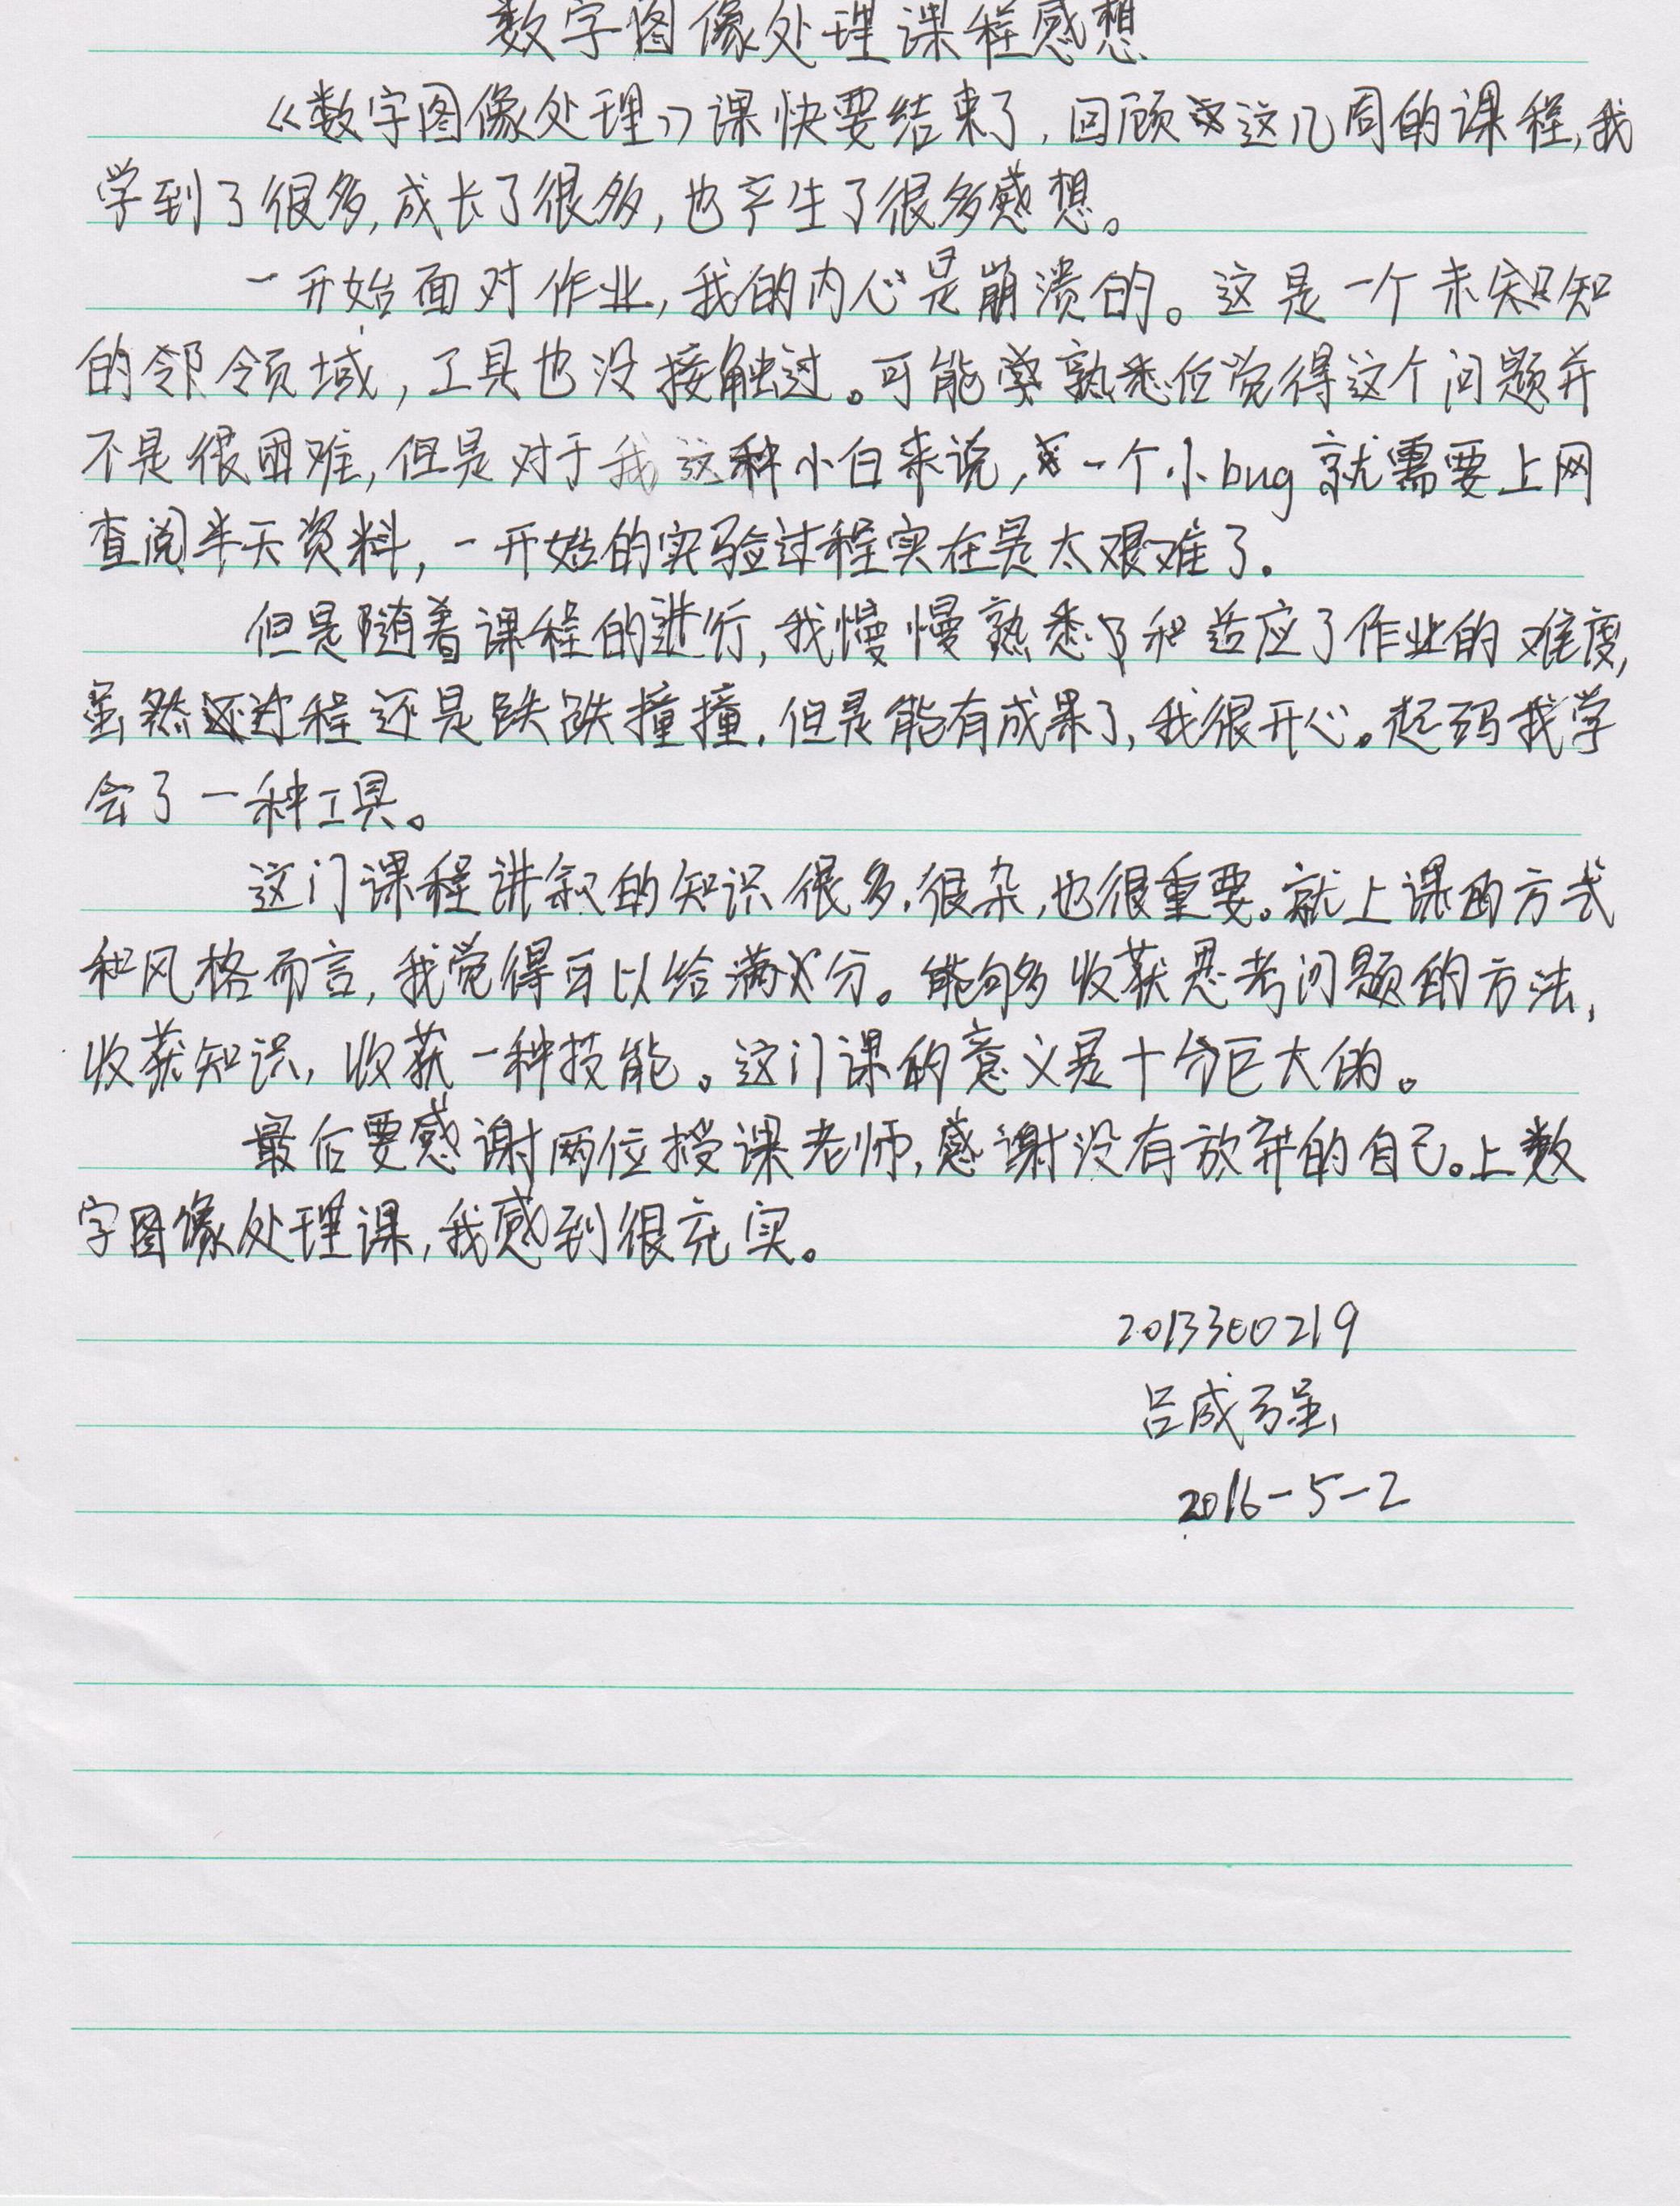 数字图像处理课程感想
《数字图像处理》课快要结束了,回顾这几周的课程,我
学到了很多,成长了很多,也产生了很多感想。
一开始面对作业,我的内心是崩溃的。这是一个未知
的领域,工具也没接触过。可能熟悉但觉得这个问题并
不是很困难,但是对于我这种小白来说,一个小bug就需要上网
查阅半天资料,一开始的实验过程实在是太艰难了.
但是随着课程的进行,我慢慢熟悉了和适应了作业的难度,
虽然过程还是跌跌撞撞,但是能有成果了,我很开心。起码我学
会了一种工具。
这门课程讲叙的知识很多.很杂,也很重要。就上课的方式
和风格而言,我觉得可以给满分。能够收获思考问题的方法,
收获知识,收获一种技能。这门课的意义是十分巨大的。
最后要感谢两位授课老师,感谢没有放弃的自己。上数
字图像处理课,我感到很充实。
2013300219
吕成强
2016-5-2